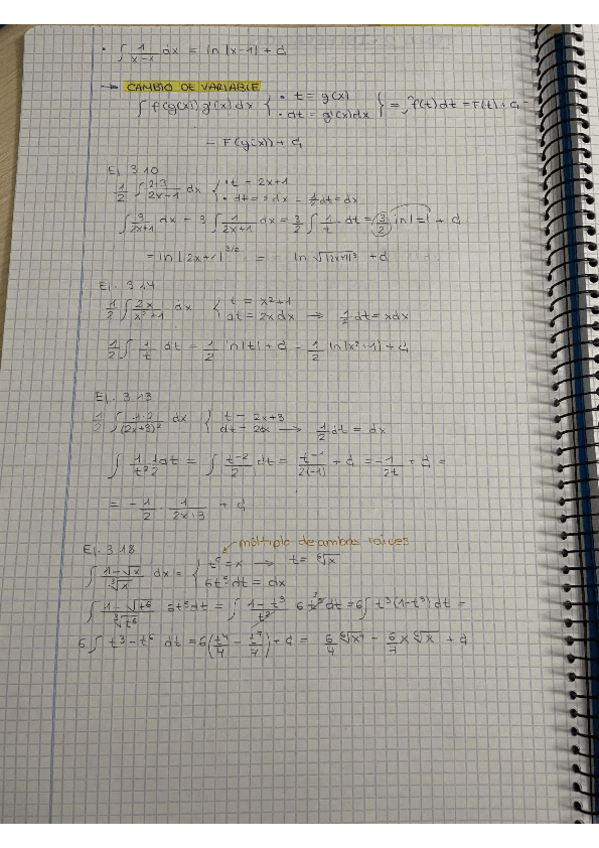 • ∫ 1/(x-1) dx = ln |x-1| + C
→ CAMBIO DE VARIABLE
∫ f(g(x)) g'(x) dx { • t = g(x) • dt = g'(x)dx } = ∫ f(t) dt = F(t) + C =
= F(g(x)) + C
Ej. 3.10
1/2 ∫ 2·3/(2x+1) dx { • t = 2x+1 • dt = 2 dx → 1/2 dt = dx
∫ 3/(2x+1) dx = 3 ∫ 1/(2x+1) dx = 3/2 ∫ 1/t dt = 3/2 ln|t| + C
= ln |2x+1|^3/2 = ln √|2x+1|³ + C
Ej. 3.14
1/2 ∫ 2x/(x²+1) dx { t = x²+1 dt = 2x dx → 1/2 dt = xdx
1/2 ∫ 1/t dt = 1/2 ln|t| + C = 1/2 ln|x²+1| + C
Ej. 3.13
1/2 ∫ 1·2/(2x+3)² dx { t = 2x+3 dt = 2dx → 1/2 dt = dx
∫ 1/t² 1/2 dt = ∫ t⁻²/2 dt = t⁻¹/2(-1) + C = -1/2t + C =
= -1/2 · 1/(2x+3) + C
Ej. 3.18
múltiplo de ambas raíces
∫ (1-√x)/∛x dx = { t⁶ = x → t = ⁶√x 6t⁵ dt = dx
∫ (1-√t⁶)/∛t⁶ 6t⁵ dt = ∫ (1-t³)/t² 6t⁵ dt = 6∫ t³(1-t³) dt =
6 ∫ t³-t⁶ dt = 6(t⁴/4 - t⁷/7) + C = 6/4 ⁶√x⁴ - 6/7 x ⁶√x + C